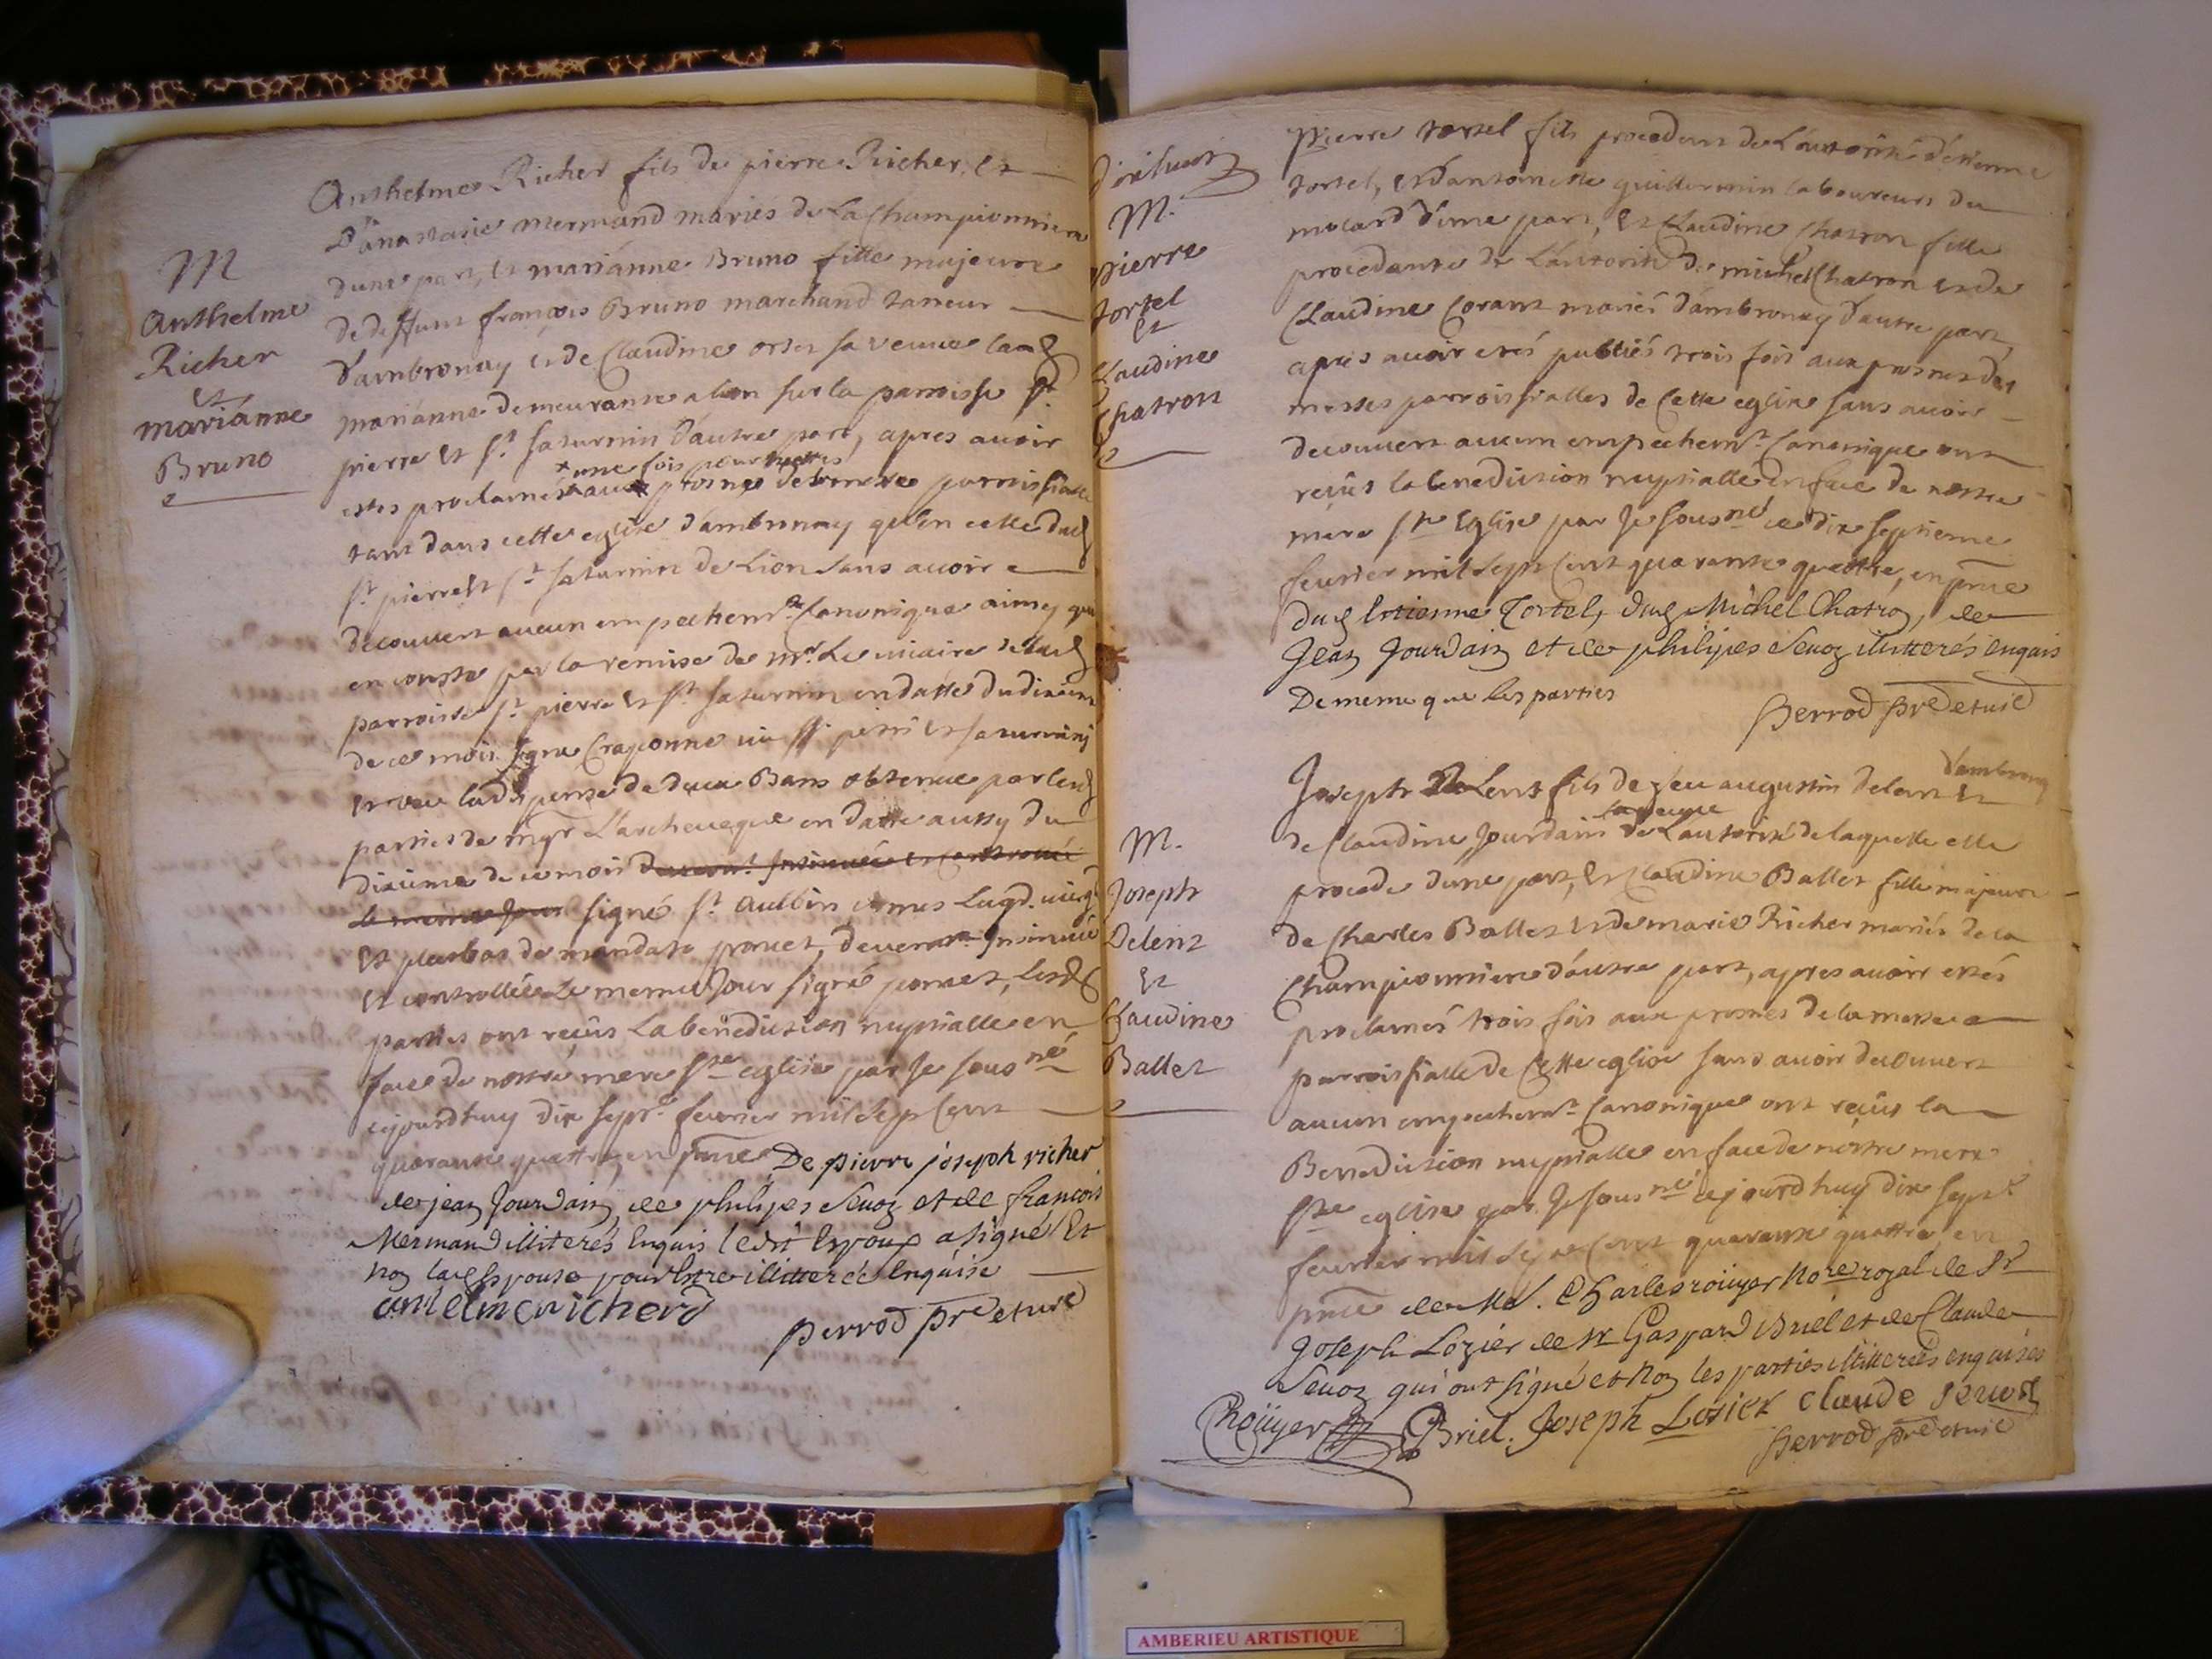 M
Anthelme
Richer
Et
mariánne
Bruno
Anthelme Richer fils de pierre Richer, Et
D'anastasie mermand mariés de La Championniere
d'une part, Et mariánne Bruno fille majeure
de deffunt françois Bruno marchand tanneur
d'ambronay et de Claudine orset sa veuve lad
mariánne demeurante a lion sur la parroisse St
pierre Et St Saturnin d'autre part, apres avoir
estes proclamés × aux prosnes de la messe parroissialle
× une fois pour toutes
tant dans cette eglise d'ambronay qu'en celle dud
St pierre Et St Saturnin de Lion sans avoir
decouvert aucun empechemt Canonique ainsy que
en conste par la remise de mr. Le vicaire de lad
parroisse St pierre Et St Saturnin en datte du dixieme
de ce mois signé Craponne vic SSi petri Et Saturnini
Et veu la dispense de deux Bans obtenue par lesd
parties de mgr L'archeveque en datte aussy du
dixieme de ce mois
le meme jour signé St Aulbin vicarius Lugd.
Et plus bas de mandato ponset, devemt Insinuée
Et controllée Le meme Jour signé ponset, lesd
parties ont reçûs La benediction nuptialle en
face de nostre mere Ste eglise par Je sousné
cejourdhuy dix sept. fevrier mil sept Cent
quarante quattre, en pnce De pierre joseph richer
de jean Jourdain, de philipes Sevoz et de francois
Mermand illiterés Enquis ledit Epoux a signé Et
non lad Epouse pour Estre illitterée Enquise
antelme richerd
perrod pre et vic
M.
pierre
tortel
Et
Claudine
Chatron
Pierre tortel fils procedant de L'autorité d'étienne
tortel, Et d'antoinette guillermin laboureurs du
molard d'une part, Et Claudine Chatron fille
procedante de L'autorité de michel Chatron et de
Claudine Corant mariés d'ambronay d'autre part,
apres avoir etés publiés trois fois aux prosnes des
messes parroissialles de Cette eglise sans avoir
decouvert aucun empechemt. Canonique ont
reçûs la benediction nuptialle en face de nostre
mere Ste Eglise par Je sousné ce dix septieme
fevrier mil sept Cent quarante quattre, en pnce
dud Estienne Tortel, dud Michel Chatron, de
Jean Jourdain et de philipes Sevoz illitterés enquis
De meme que les parties
perrod pre et vic
M.
Joseph
Delent
Et
Claudine
Ballet
Joseph De Lent fils de feu augustin delent Et
d'ambronay
de Claudine Jourdain de L'autorité de laquelle elle
sa veuve
procede d'une part, Et Claudine Ballet fille majeure
de Charles Ballet et de marie Richer mariés de la
Championniere d'autre part, apres avoir estés
proclamés trois fois aux prosnes de la messe
parroissialle de Cette eglise sans avoir decouvert
aucun empechemt. Canonique ont reçûs la
Benediction nuptialle en face de nôstre mere
Ste eglise par Je sousné cejourdhuy dix sept
fevrier mil sept Cent quarante quattre, en
pnce de Me. Charles roüyer Nore royal de Sr
Joseph Lozier de Sr Gaspard Briel et de Claude
Sevoz qui ont signé et Non les parties illitterées enquises
Roüyer Briel. Joseph Losier Claude Sevoz
perrod pre et vic
AMBERIEU ARTISTIQUE